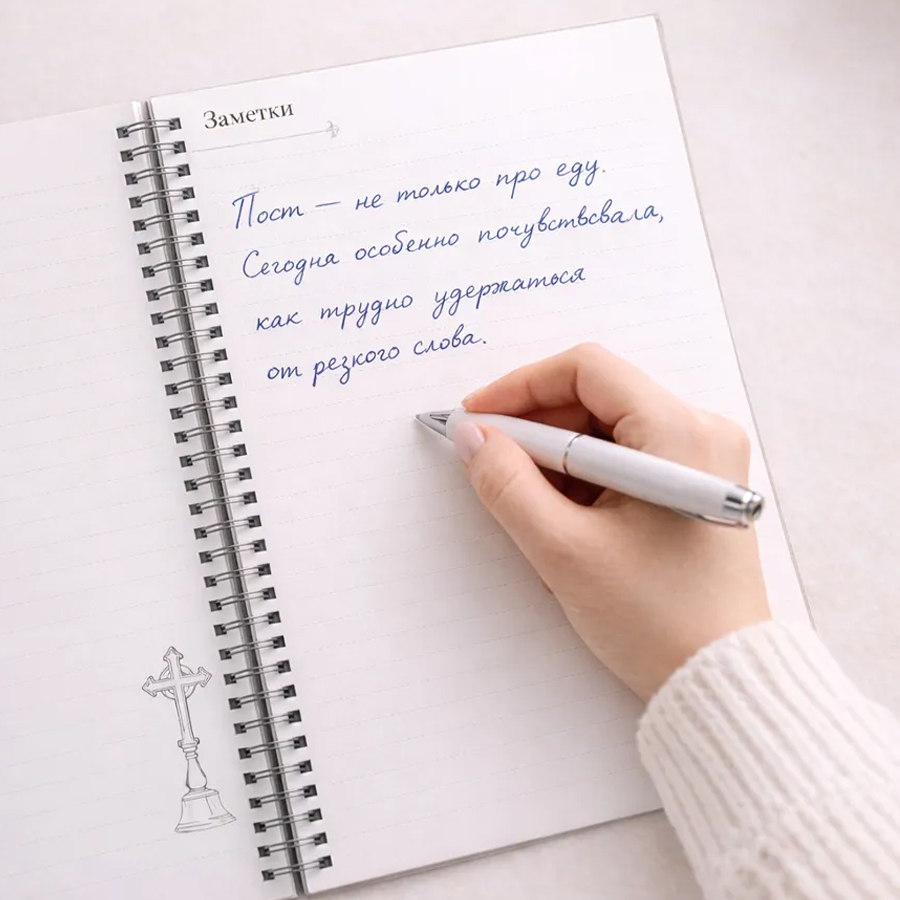 Заметки
Пост — не только про еду.
Сегодна особенно почувствсвала,
как трудно удержаться
от резкого слова.